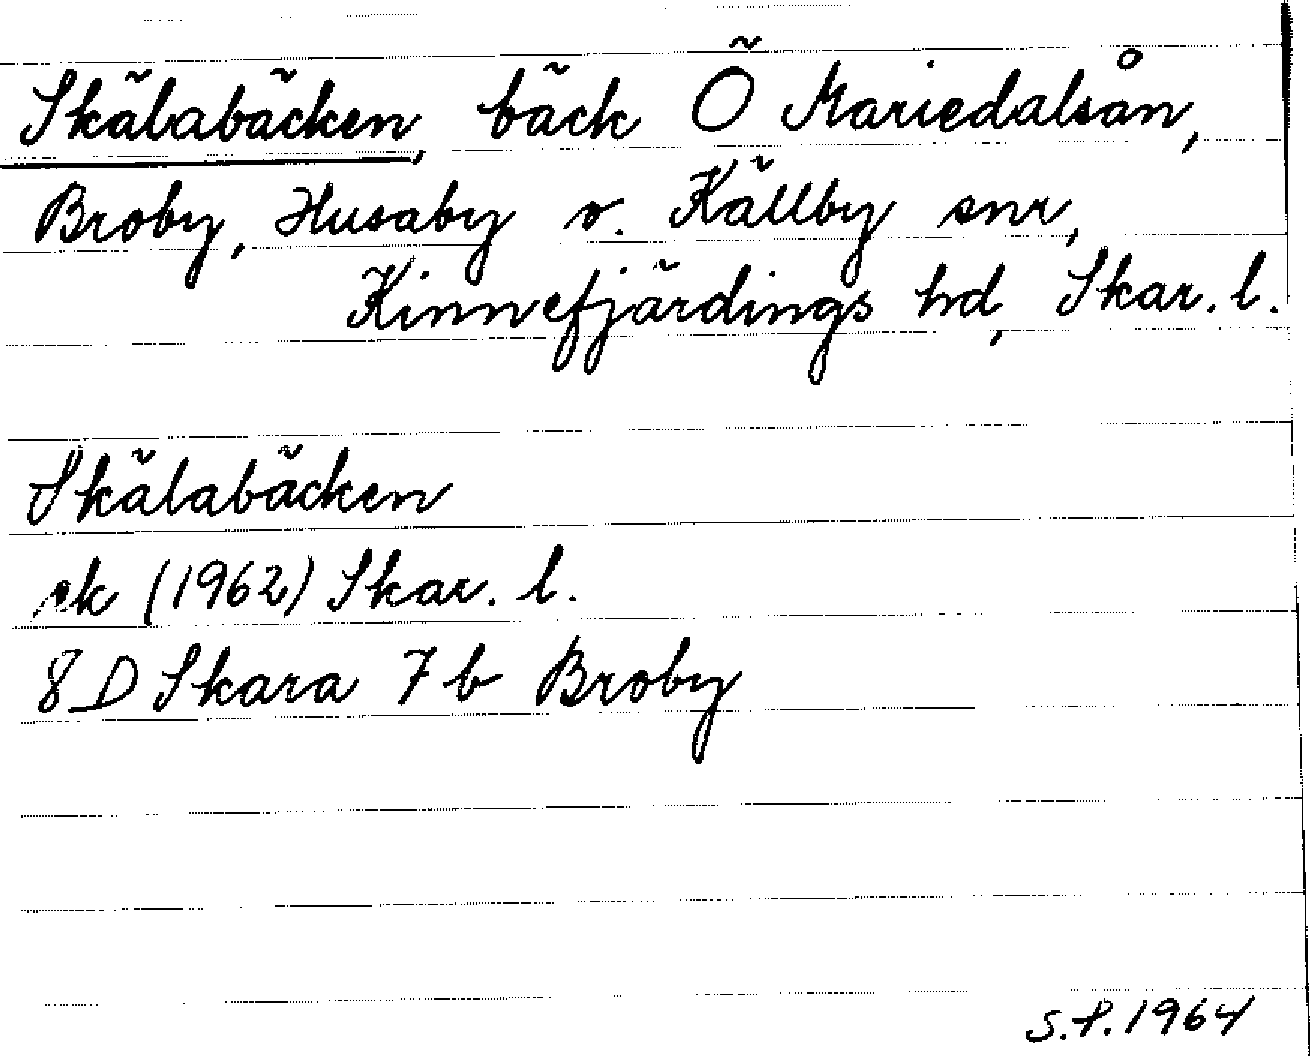 Skälabäcken, bäck Ö Mariedalsån,
Broby, Husaby o. Källby snr,
Kinnefjärdings hd, Skar. l.
Skälabäcken
ek (1962) Skar. l.
8 D Skara 7 b Broby
S.P. 1964